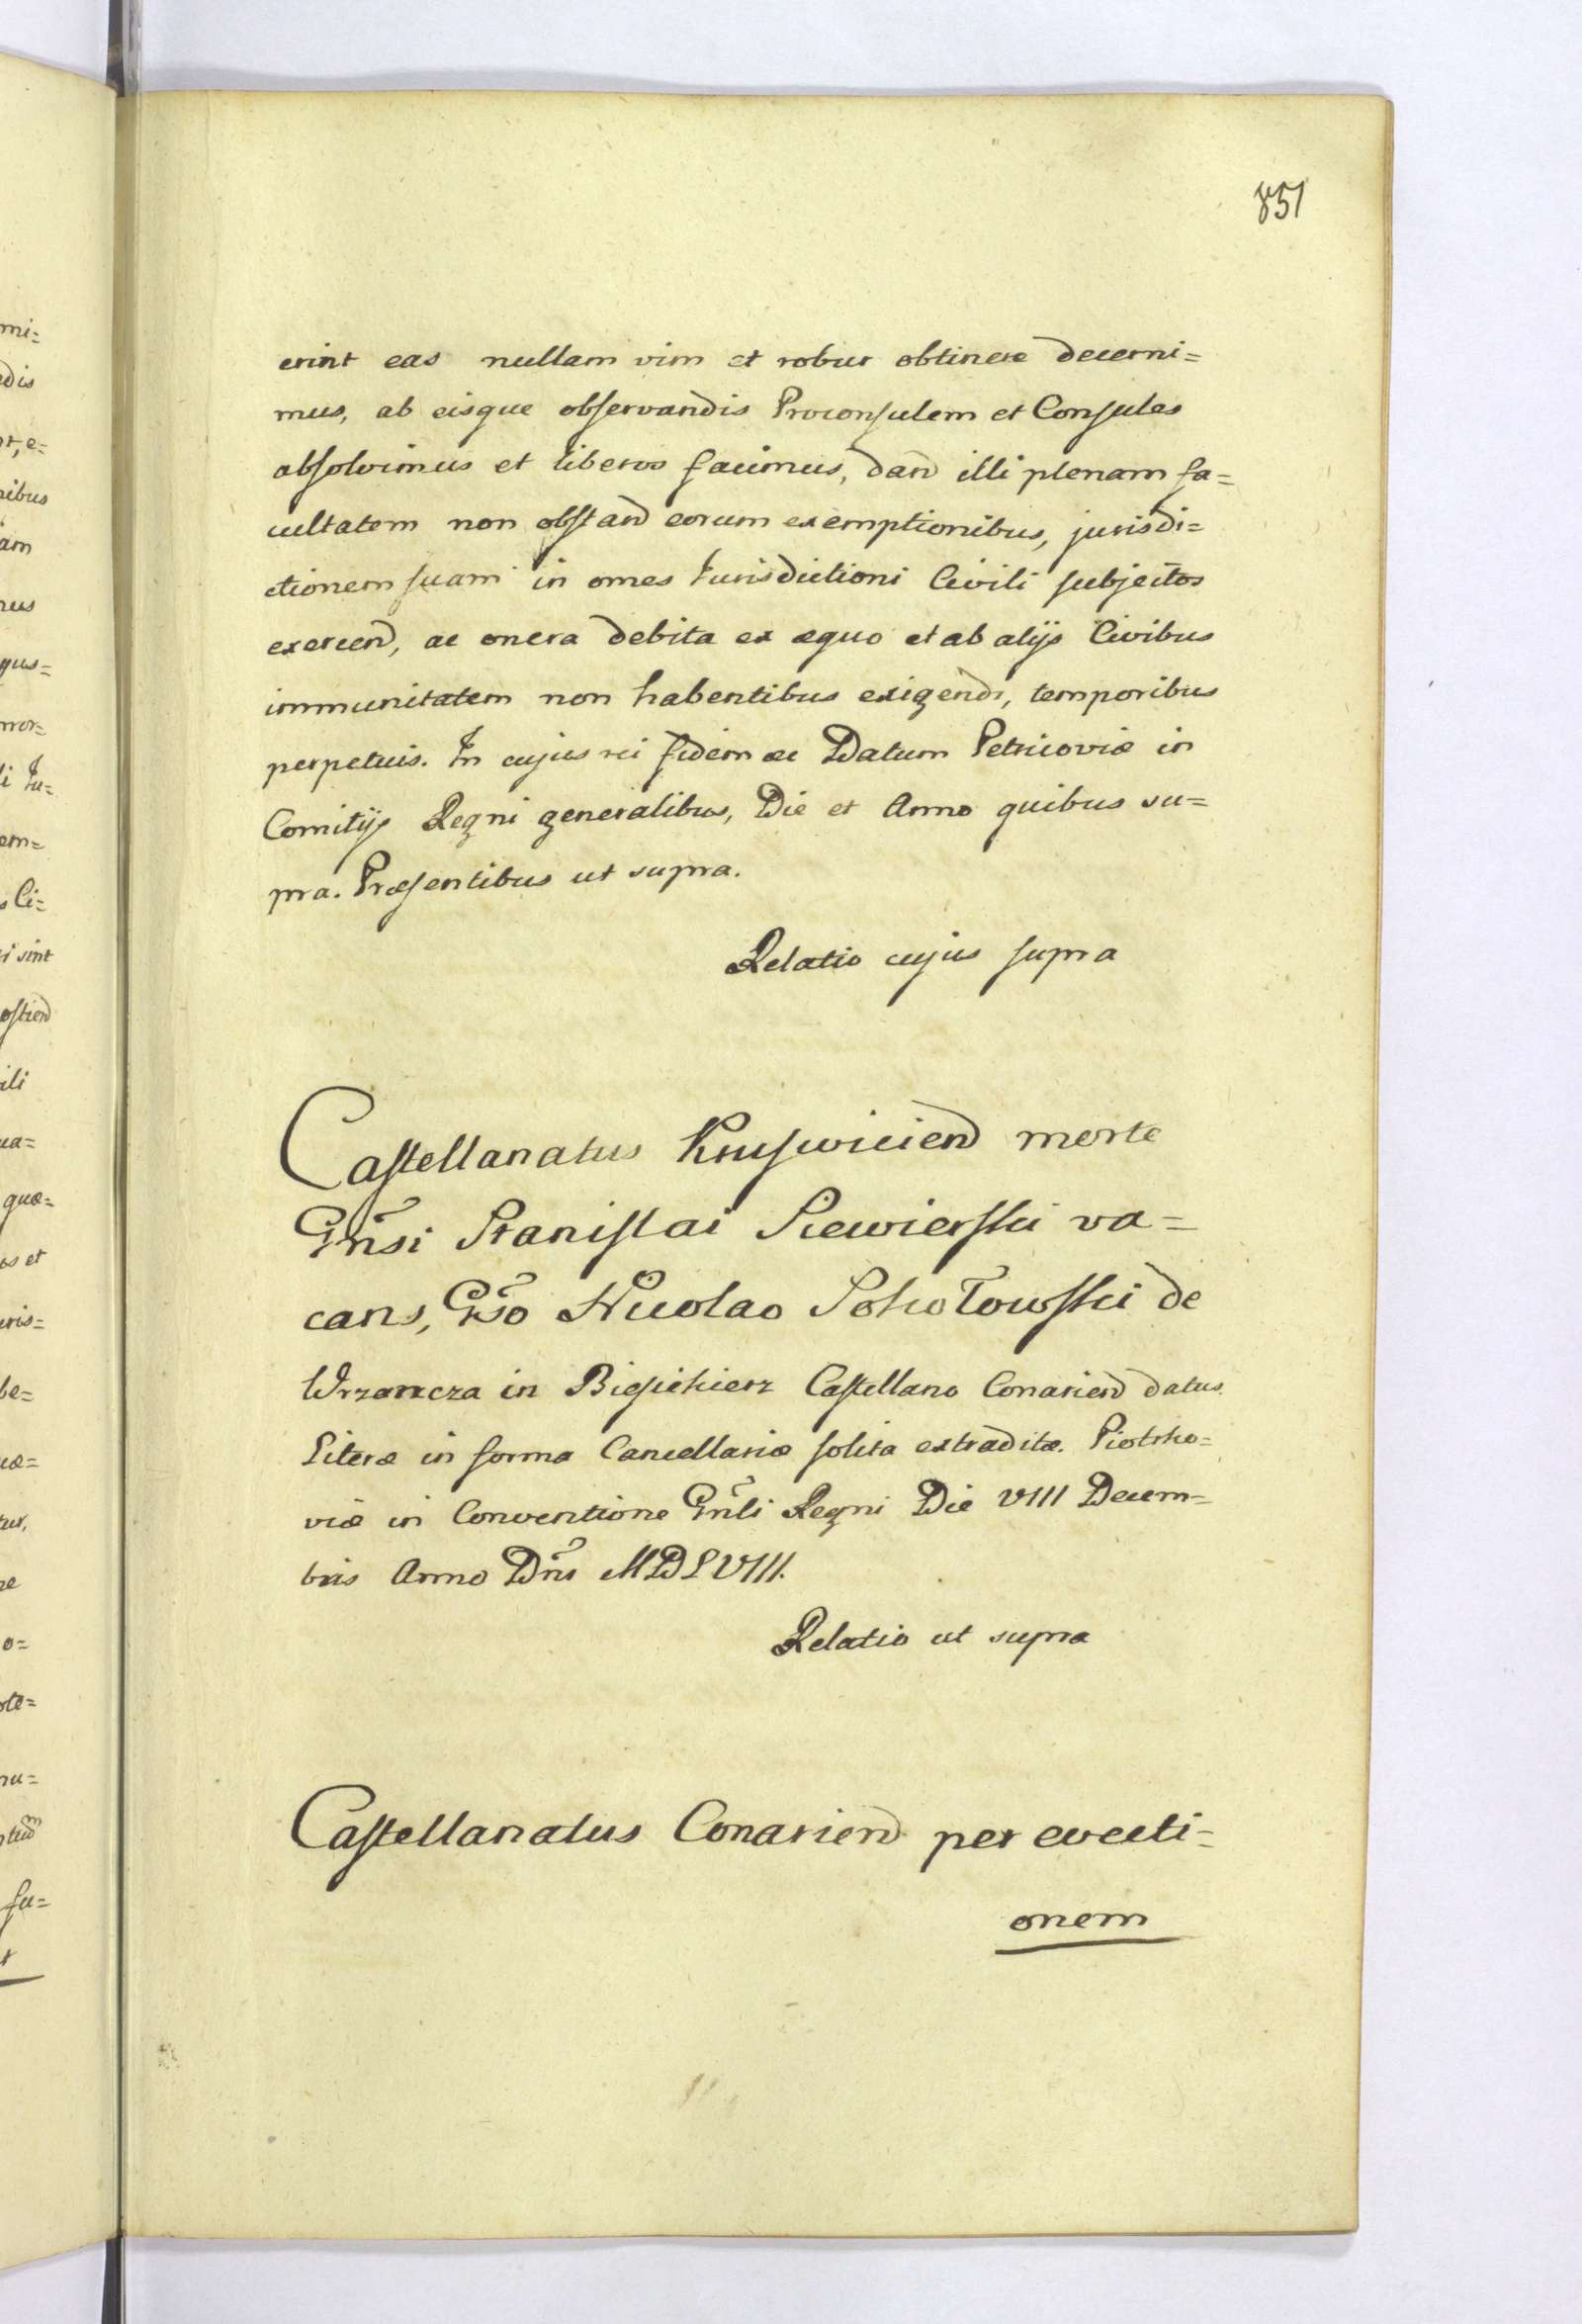 851
erint eas nullam vim et robur obtinere decerni=
mus, ab eisque obſervandis Proconſulem et Conſules
abſolvimus et liberos facimus, dan̄d illi plenam fa=
cultatem non obſtand eorum exemptionibus, jurisdi=
ctionem ſuam in omes Jurisdictioni Civili ſubjectos
exercend, ac onera debita ex æquo et ab alijs Civibus
immunitatem non habentibus exigendi, temporibus
perpetuis. In cujus rei fidem &c Datum Petricoviæ in
Comitijs Regni generalibus, Die et Anno quibus su=
pra. Præſentibus ut supra.
Relatio cujus ſupra
Caſtellanatus Kruſwiciend morte
Gñsi Staniſlai Siewierſki va=
cans, Gñso Nicolao Sokołowſki de
Wrzancza in Bieſiekierz Caſtellano Conariend datus.
Literæ in forma Cancellariæ ſolita extraditæ. Piotrko=
viæ in Conventione Gñli Regni Die VIII Decem=
bris Anno Dñi MDLVIII.
Relatio ut supra
Caſtellanatus Conariend per evecti=
onem